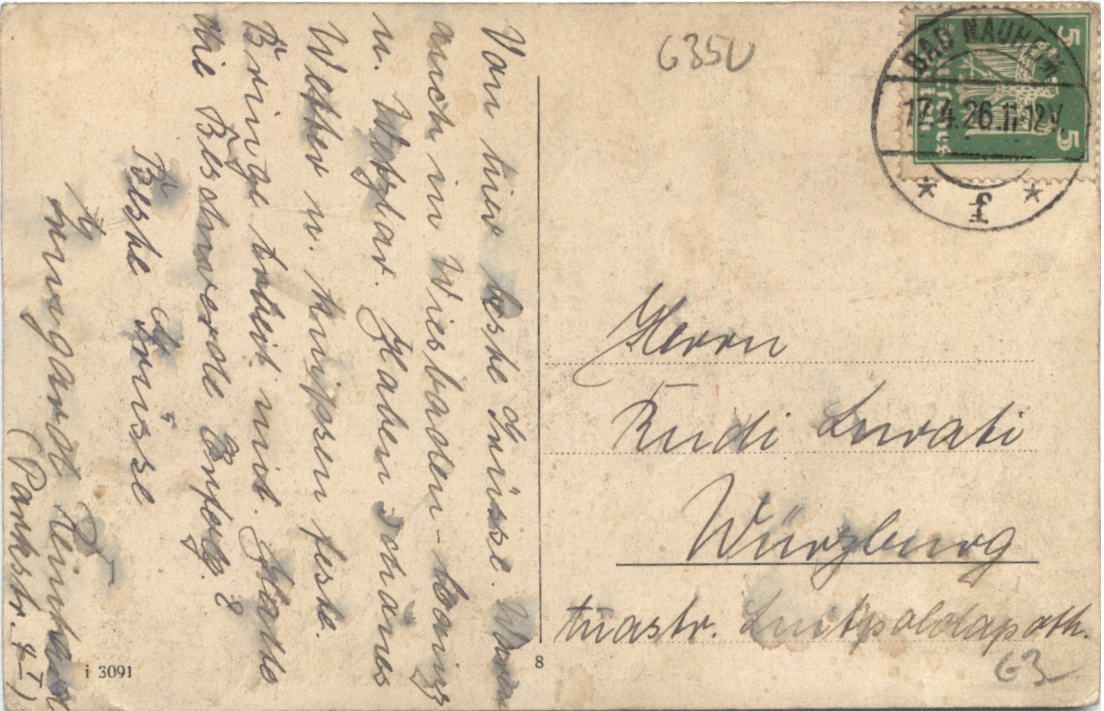 Von hier beste Grüsse. Waren
auch in Wiesbaden-Mainz
u. Wetzlar. Haben schönes
Wetter u. knipsen feste.
Bringe mit. Hatte
nie Beschwerde
Beste Grüsse
Irmgard Reinhard
(Parkstr. 4 I)
G35U
BAD NAUHEIM
17.4.26.11-12V.
* f *
5
5
Herrn
Rudi Lurati
Würzburg
Luitpoldapoth.
G3
i 3091
8